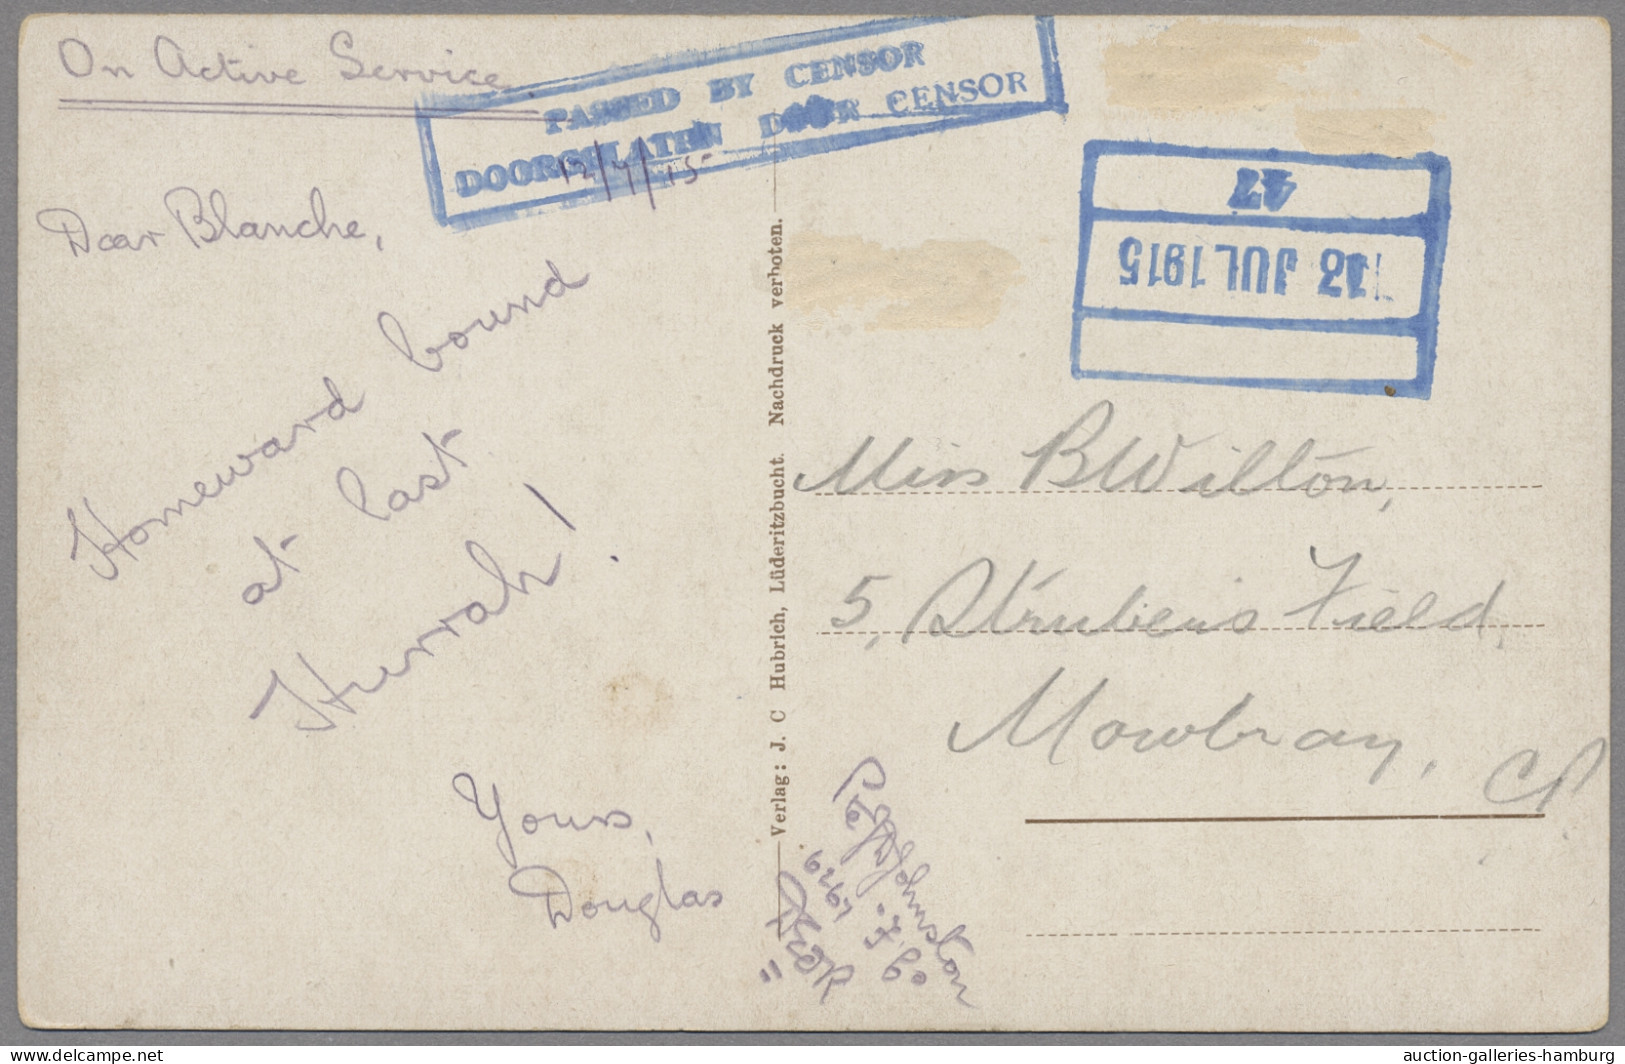 On Active Service
PASSED BY CENSOR
DOORGELATEN DOOR CENSOR
12/7/15
47
13 JUL 1915
Dear Blanche,
Homeward bound
at last
Hurrah!
Yours,
Douglas
Verlag: J. C Hubrich, Lüderitzbucht. Nachdruck verboten.
Miss B Wilton,
5, Strubens Field,
Mowbray, CP
Johnston
6267
auction-galleries-hamburg